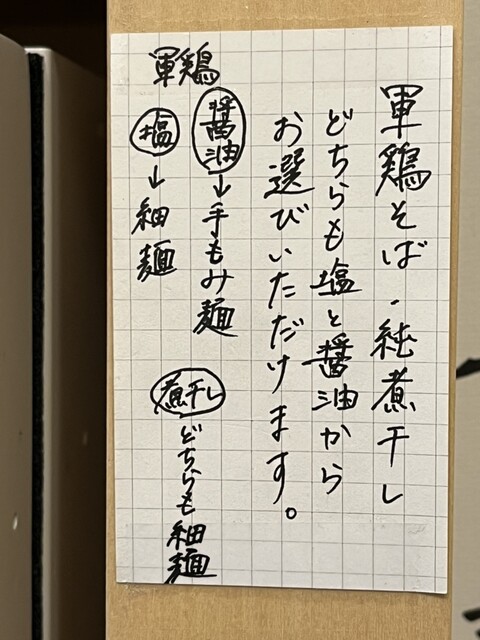 軍鶏そば・純煮干し
どちらも塩と醤油から
お選びいただけます。
軍鶏
醤油→手もみ麺
塩→細麺
煮干し
どちらも細麺